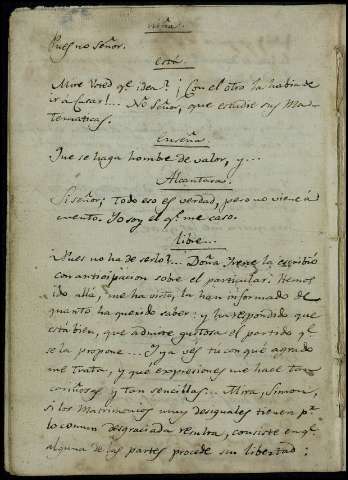 niña.
Pues no señor.
está
Mire Usted qe idea! ¡Con el otro la habia de
ir á casar!... No Señor, que estudie sus Ma-
tematicas.
enseña.
Que se haga hombre de valor, y...
Alcantara.
Si señor; Todo eso es verdad, pero no viene á
cuento. Yo soy el qe me caso.
libre...
¿Pues no ha de serlo?... Doña Irene la escribió
con anticipacion sobre el particular. Hemos
ido allá, me ha visto, la han informado de
quanto ha querido saber: y ha respondido que
está bien, que admite gustosa el partido qe
se la propone... Y ya vés tu con qué agrado
me trata, y qué expresiones me hace tan
cariñosas y tan sencillas... Mira, Simon,
si los Matrimonios muy desiguales tienen pr
lo comun desgraciada resulta, consiste en qe
alguna de las partes procede sin libertad: